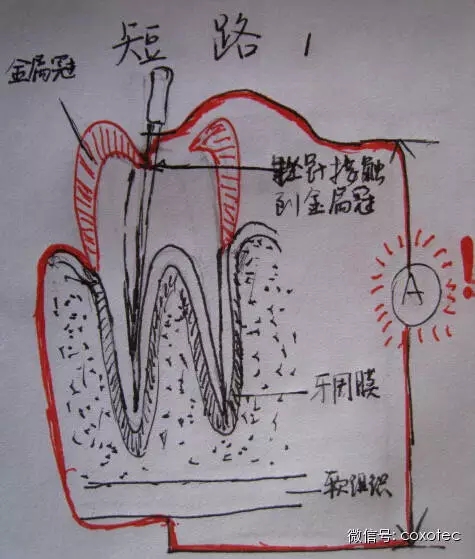 短路 1
金属冠
锉针接触
到金属冠
A
!
牙周膜
软组织
微信号: coxotec